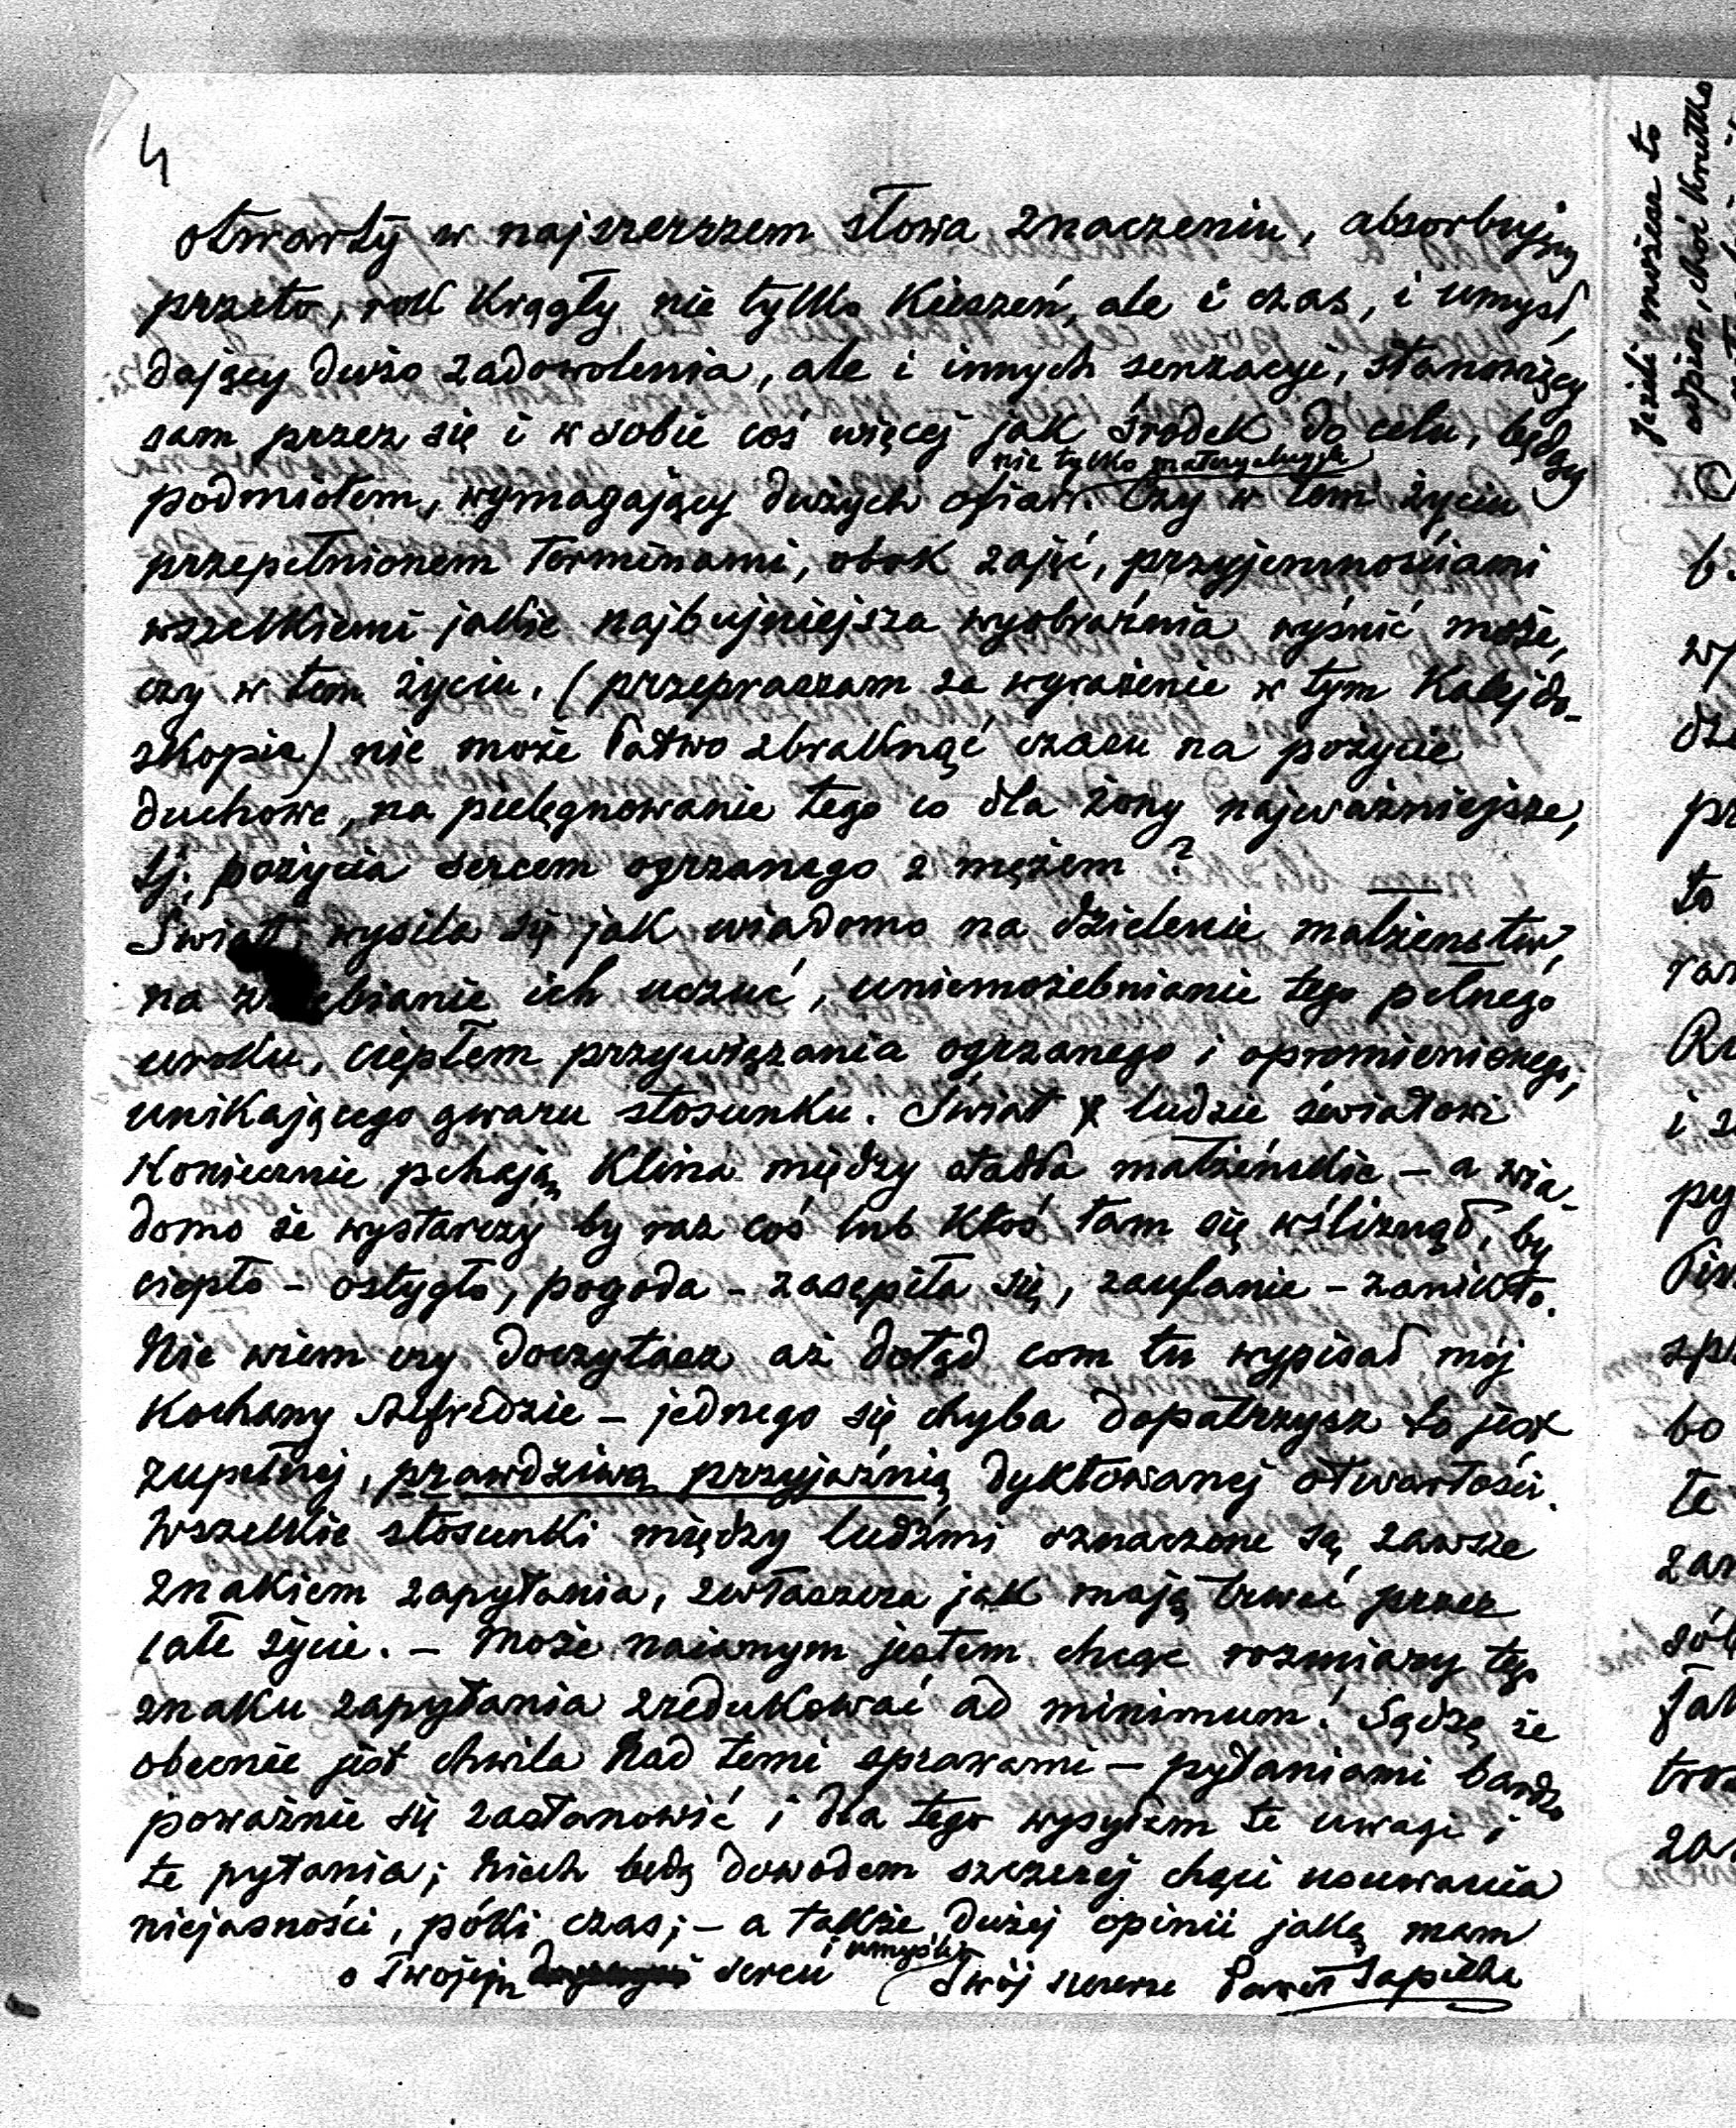 4
otwarty w najszerszem słowa znaczeniu, absorbujący
przeto, rok krągły nie tylko kieszeń, ale i czas, i umysł,
dający dużo zadowolenia, ale i innych senzacyi, stanowiący
sam przez się i w sobie coś więcej jak środek do celu, będący
nie tylko materyalnych
podmiotem, wymagający dużych ofiar. Czy w tem życiu
przepełnionem terminami, obok zajęć, przyjemnościami
wszelkiemi jakie najbujniejsza wyobraźnia wyśnić może,
czy w tem życiu, (przepraszam za wyrażenie w tym Kalejdo-
skopie) nie może łatwo zbraknąć czasu na pożycie
duchowe, na pielęgnowanie tego co dla żony najważniejsze,
tj. pożycia sercem ogrzanego z mężem?
Świat wysila się jak wiadomo na dzielenie małżenstw,
na ich uczuć, uniemożebnianie tego pełnego
uroku, ciepłem przywiązania ogrzanego i opromienionego,
unikającego gwaru stosunku. Świat i ludzie światowi
Koniecznie pchają Klina między stadła małżeńskie – a wia-
domo że wystarczy by raz coś lub Ktoś tam się wśliznął, by
ciepło – ostygło, pogoda – zasępiła się, zaufanie – zanikło.
Nie wiem czy doczytasz aż dotąd com tu wypisał mój
Kochany Alfredzie – jednego się chyba dopatrzysz to jest
zupełnej, prawdziwą przyjaźnią dyktowanej otwartości.
Wszelkie stosunki między ludźmi oznaczone są zawsze
znakiem zapytania, zwłaszcza jak mają trwać przez
całe życie. – Może naiwnym jestem chcąc rozmiary tego
znaku zapytania zredukować ad minimum! Sądzę że
obecnie jest chwila nad temi sprawami – pytaniami bardzo
poważnie się zastanowić i dla tego wysyłam te uwagi i
te pytania; niech będą dowodem szczerej chęci usuwania
niejasności, póki czas; – a także dużej opinii jaką mam
i umyśle
o Twojem sercu Twój szczerze Paweł Sapieha
Jeżeli możesz to
odpisz, choć krótko